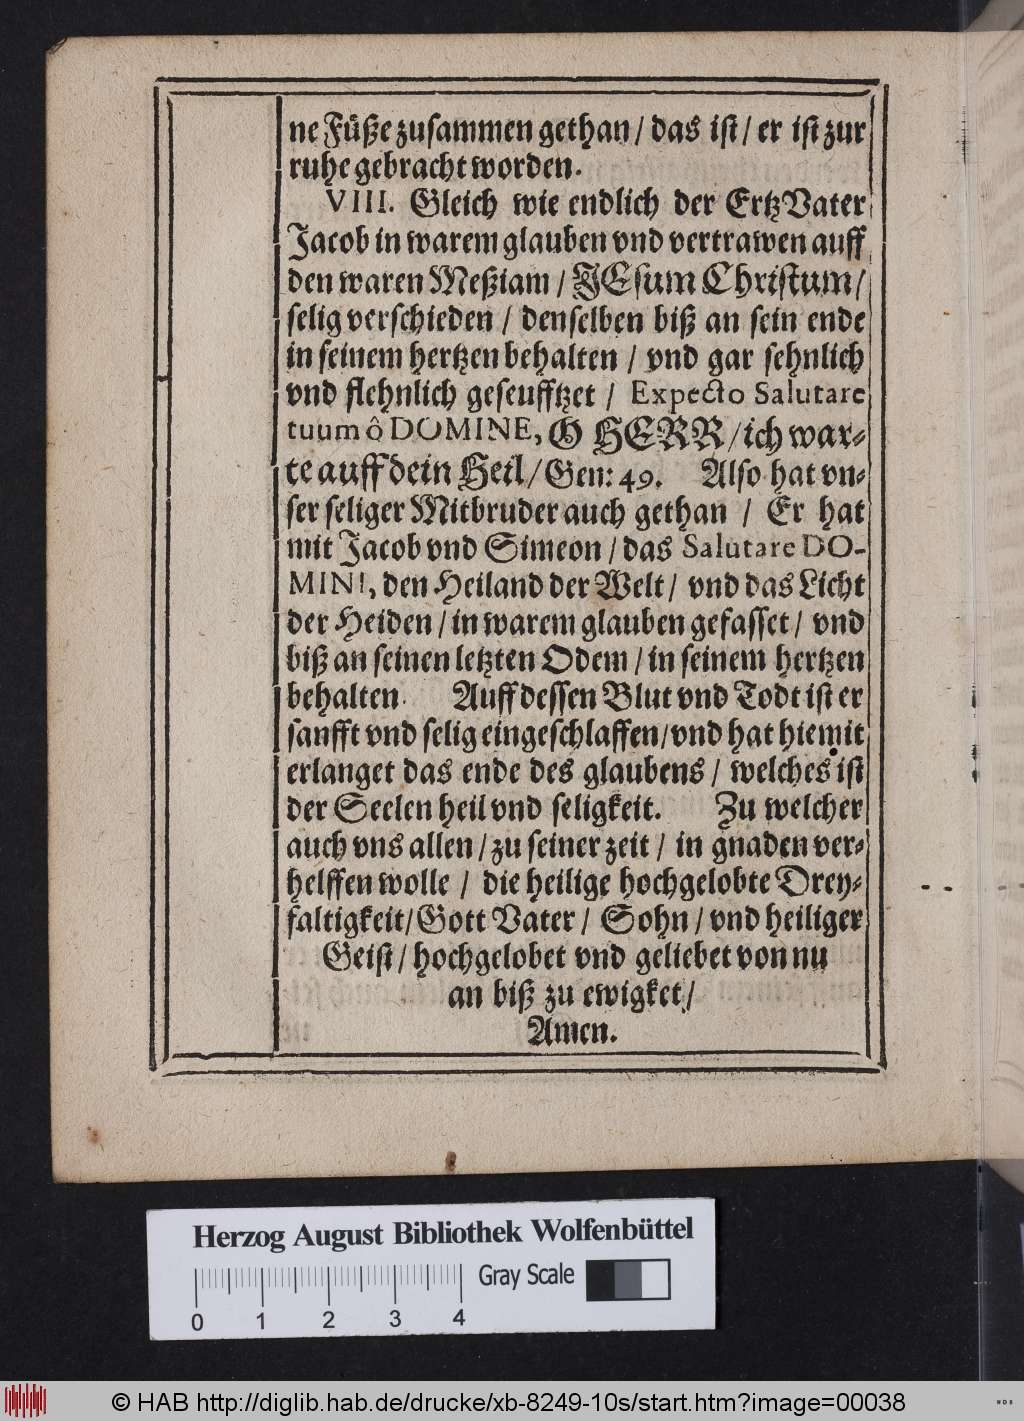 ne Füße zusammen gethan / das ist / er ist zur
ruhe gebracht worden.
VIII. Gleich wie endlich der Ertz Vater
Jacob in warem glauben vnd vertrawen auff
den waren Meßiam / JEsum Christum /
selig verschieden / denselben biß an sein ende
in seinem hertzen behalten / vnd gar sehnlich
vnd flehnlich geseufftzet / Expecto Salutare
tuum ô DOMINE, O HERR / ich war-
te auff dein Heil / Gen: 49. Also hat vn-
ser seliger Mitbruder auch gethan / Er hat
mit Jacob vnd Simeon / das Salutare DO-
MINI, den Heiland der Welt / vnd das Licht
der Heiden / in warem glauben gefasset / vnd
biß an seinen letzten Odem / in seinem hertzen
behalten. Auff dessen Blut vnd Todt ist er
sanfft vnd selig eingeschlaffen / vnd hat hiemit
erlanget das ende des glaubens / welches ist
der Seelen heil vnd seligkeit. Zu welcher
auch vns allen / zu seiner zeit / in gnaden ver-
helffen wolle / die heilige hochgelobte Drey-
faltigkeit / Gott Vater / Sohn / vnd heiliger
Geist / hochgelobet vnd geliebet von nu
an biß zu ewigket /
Amen.
Herzog August Bibliothek Wolfenbüttel
Gray Scale
0 1 2 3 4
© HAB http://diglib.hab.de/drucke/xb-8249-10s/start.htm?image=00038